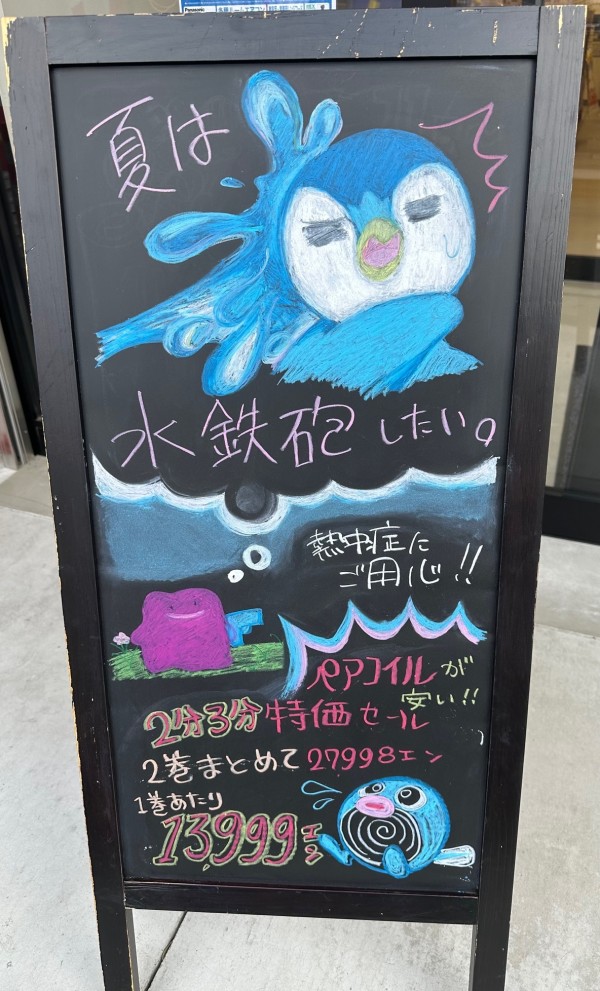 Panasonic
夏は
水鉄砲したい。
熱中症に
ご用心!!
ペアコイルが
安い!!
2分3分特価セール
2巻まとめて27998エン
1巻あたり
13999エン